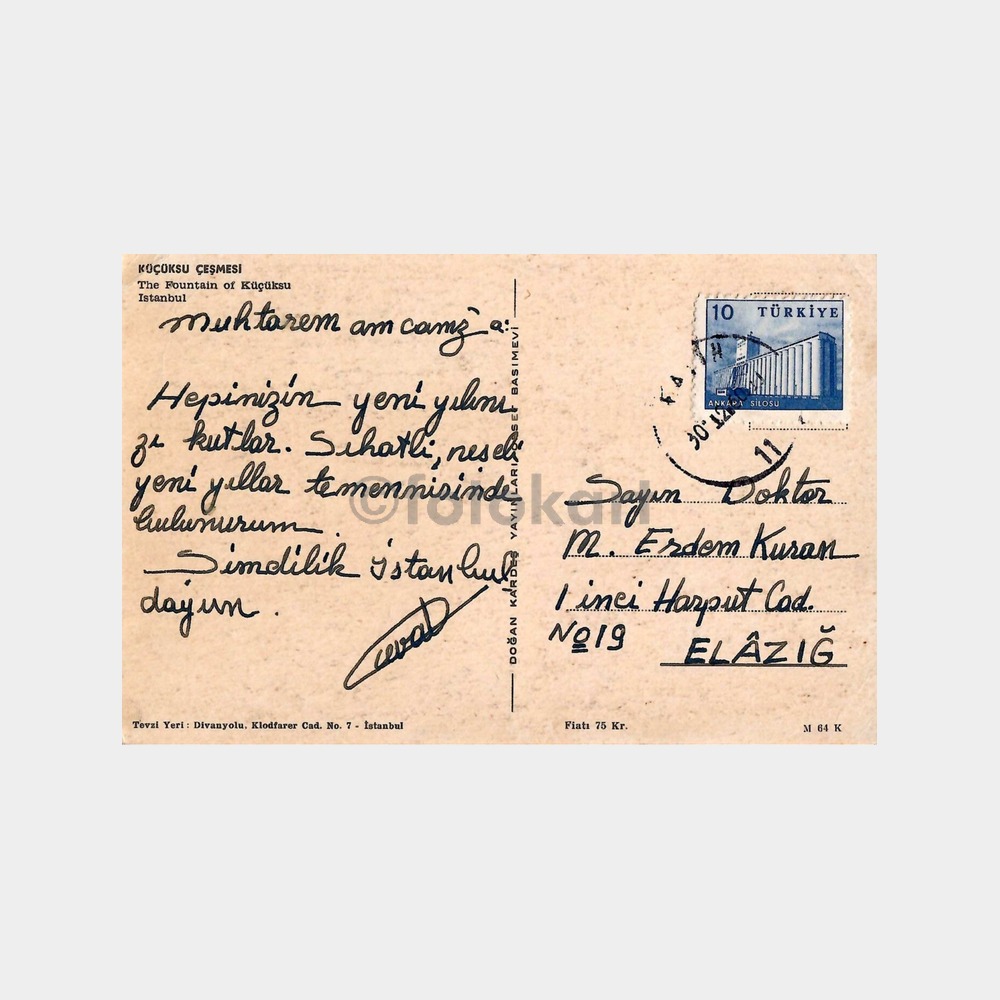 KÜÇÜKSU ÇEŞMESİ
The Fountain of Küçüksu
Istanbul
Muhtarem amcamz'a..
Hepinizin yeni yılını
zı kutlar. Sıhatli, neşeli
yeni yıllar temennisinde
bulunurum.
Simdilik İstanbul
dayım.
Cevat
DOĞAN KARDEŞ YAYINLARI BASIMEVİ
©fotokart
10 TÜRKİYE
ANKARA SİLOSU
30.12.60.11
11
Sayın Doktor
M. Erdem Kuran
1 inci Harput Cad.
No 19
ELÂZIĞ
Tevzi Yeri : Divanyolu, Klodfarer Cad. No. 7 - İstanbul
Fiatı 75 Kr.
M 64 K